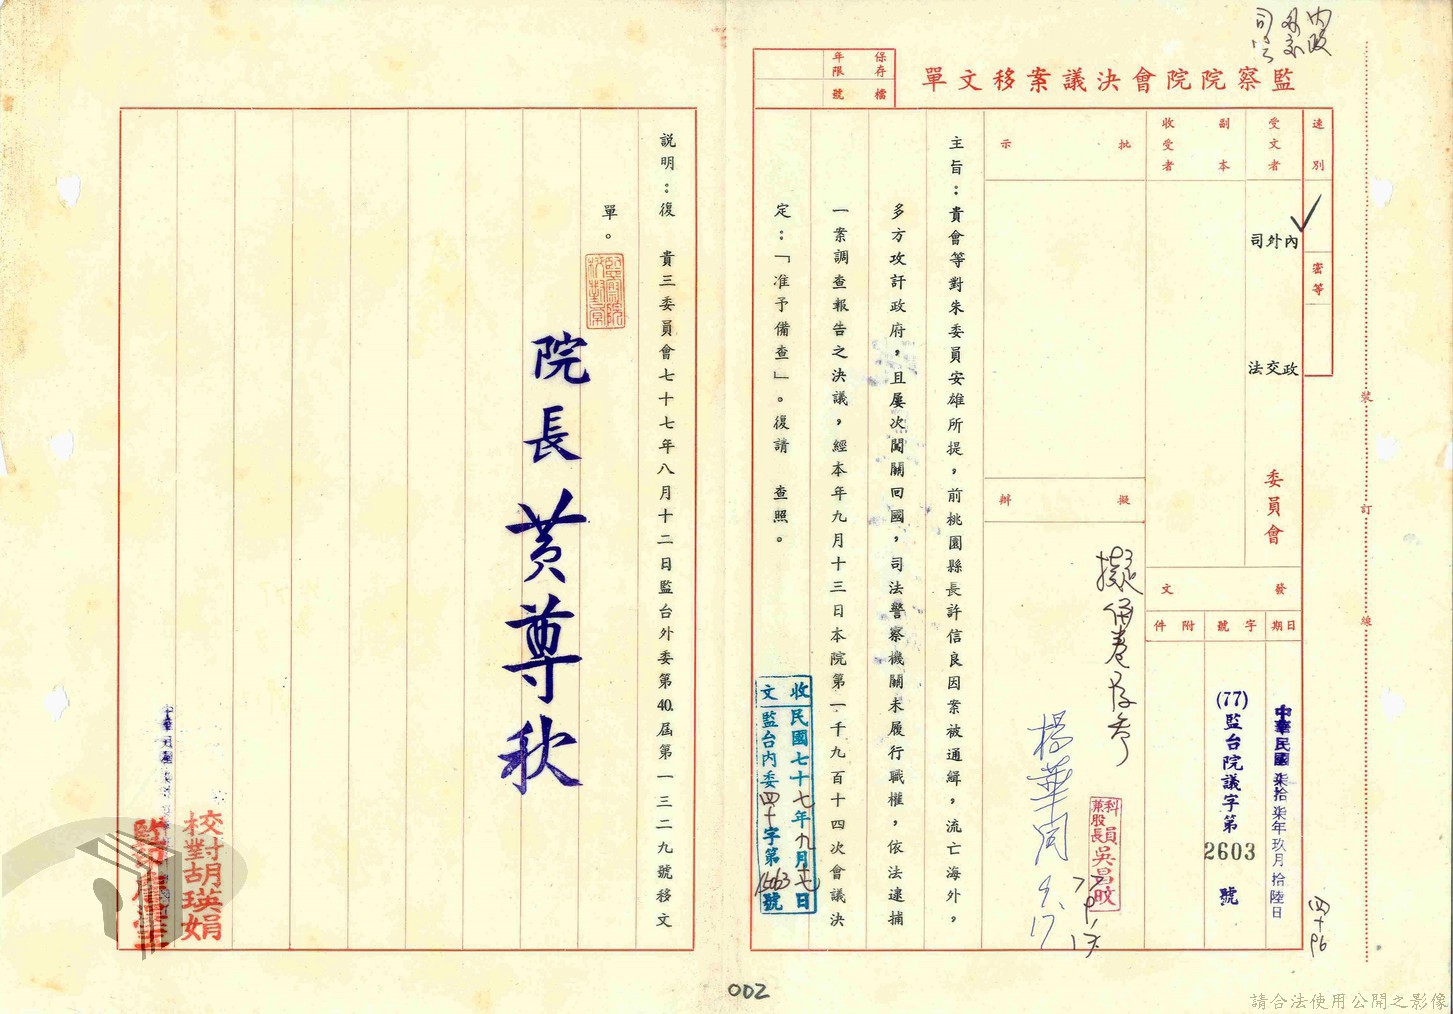 內政
外交
司法
監察院院會決議案移文單
保存年限
檔號
速別
密等
受文者
內政
外交
司法
委員會
副本收受者
發文
日期
中華民國柒拾柒年玖月拾陸日
字號
(77)監台院議字第2603號
附件
批示
擬辦
擬併卷存參
科員兼股長吳昌旼
楊華同 9.17
主旨：貴會等對朱委員安雄所提，前桃園縣長許信良因案被通緝，流亡海外，
多方攻訐政府，且屢次闖關回國，司法警察機關未履行職權，依法逮捕
一案調查報告之決議，經本年九月十三日本院第二千九百十四次會議決
定：「准予備查」。復請　查照。
收文
民國七十七年九月十七日
監台內委四十字第15063號
說明：復　貴三委員會七十七年八月十二日監台外委第40.屆第一三二九號移文
單。
院長黃尊秋
校對胡瑛娟
監印
裝
訂
線
002
請合法使用公開之影像